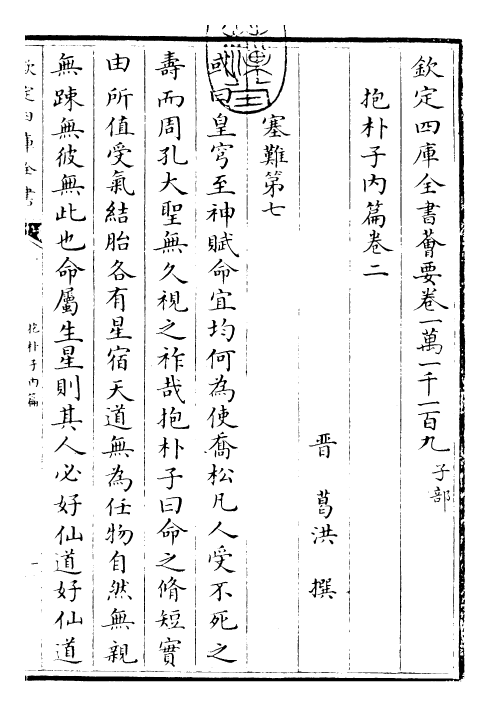 欽定四庫全書薈要卷一萬一千一百九 子部
抱朴子内篇卷二
晋 葛洪 撰
塞難第七
或曰皇穹至神賦命宜均何為使喬松凡人受不死之
壽而周孔大聖無久視之祚哉抱朴子曰命之脩短實
由所值受氣結胎各有星宿天道無為任物自然無親
無踈無彼無此也命屬生星則其人必好仙道好仙道
欽定四庫全書
抱朴子内篇
一